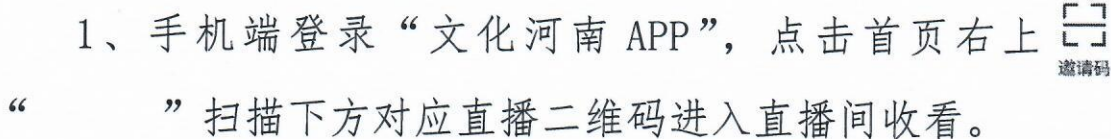 1、手机端登录“文化河南 APP”，点击首页右上
邀请码
“ ”扫描下方对应直播二维码进入直播间收看。